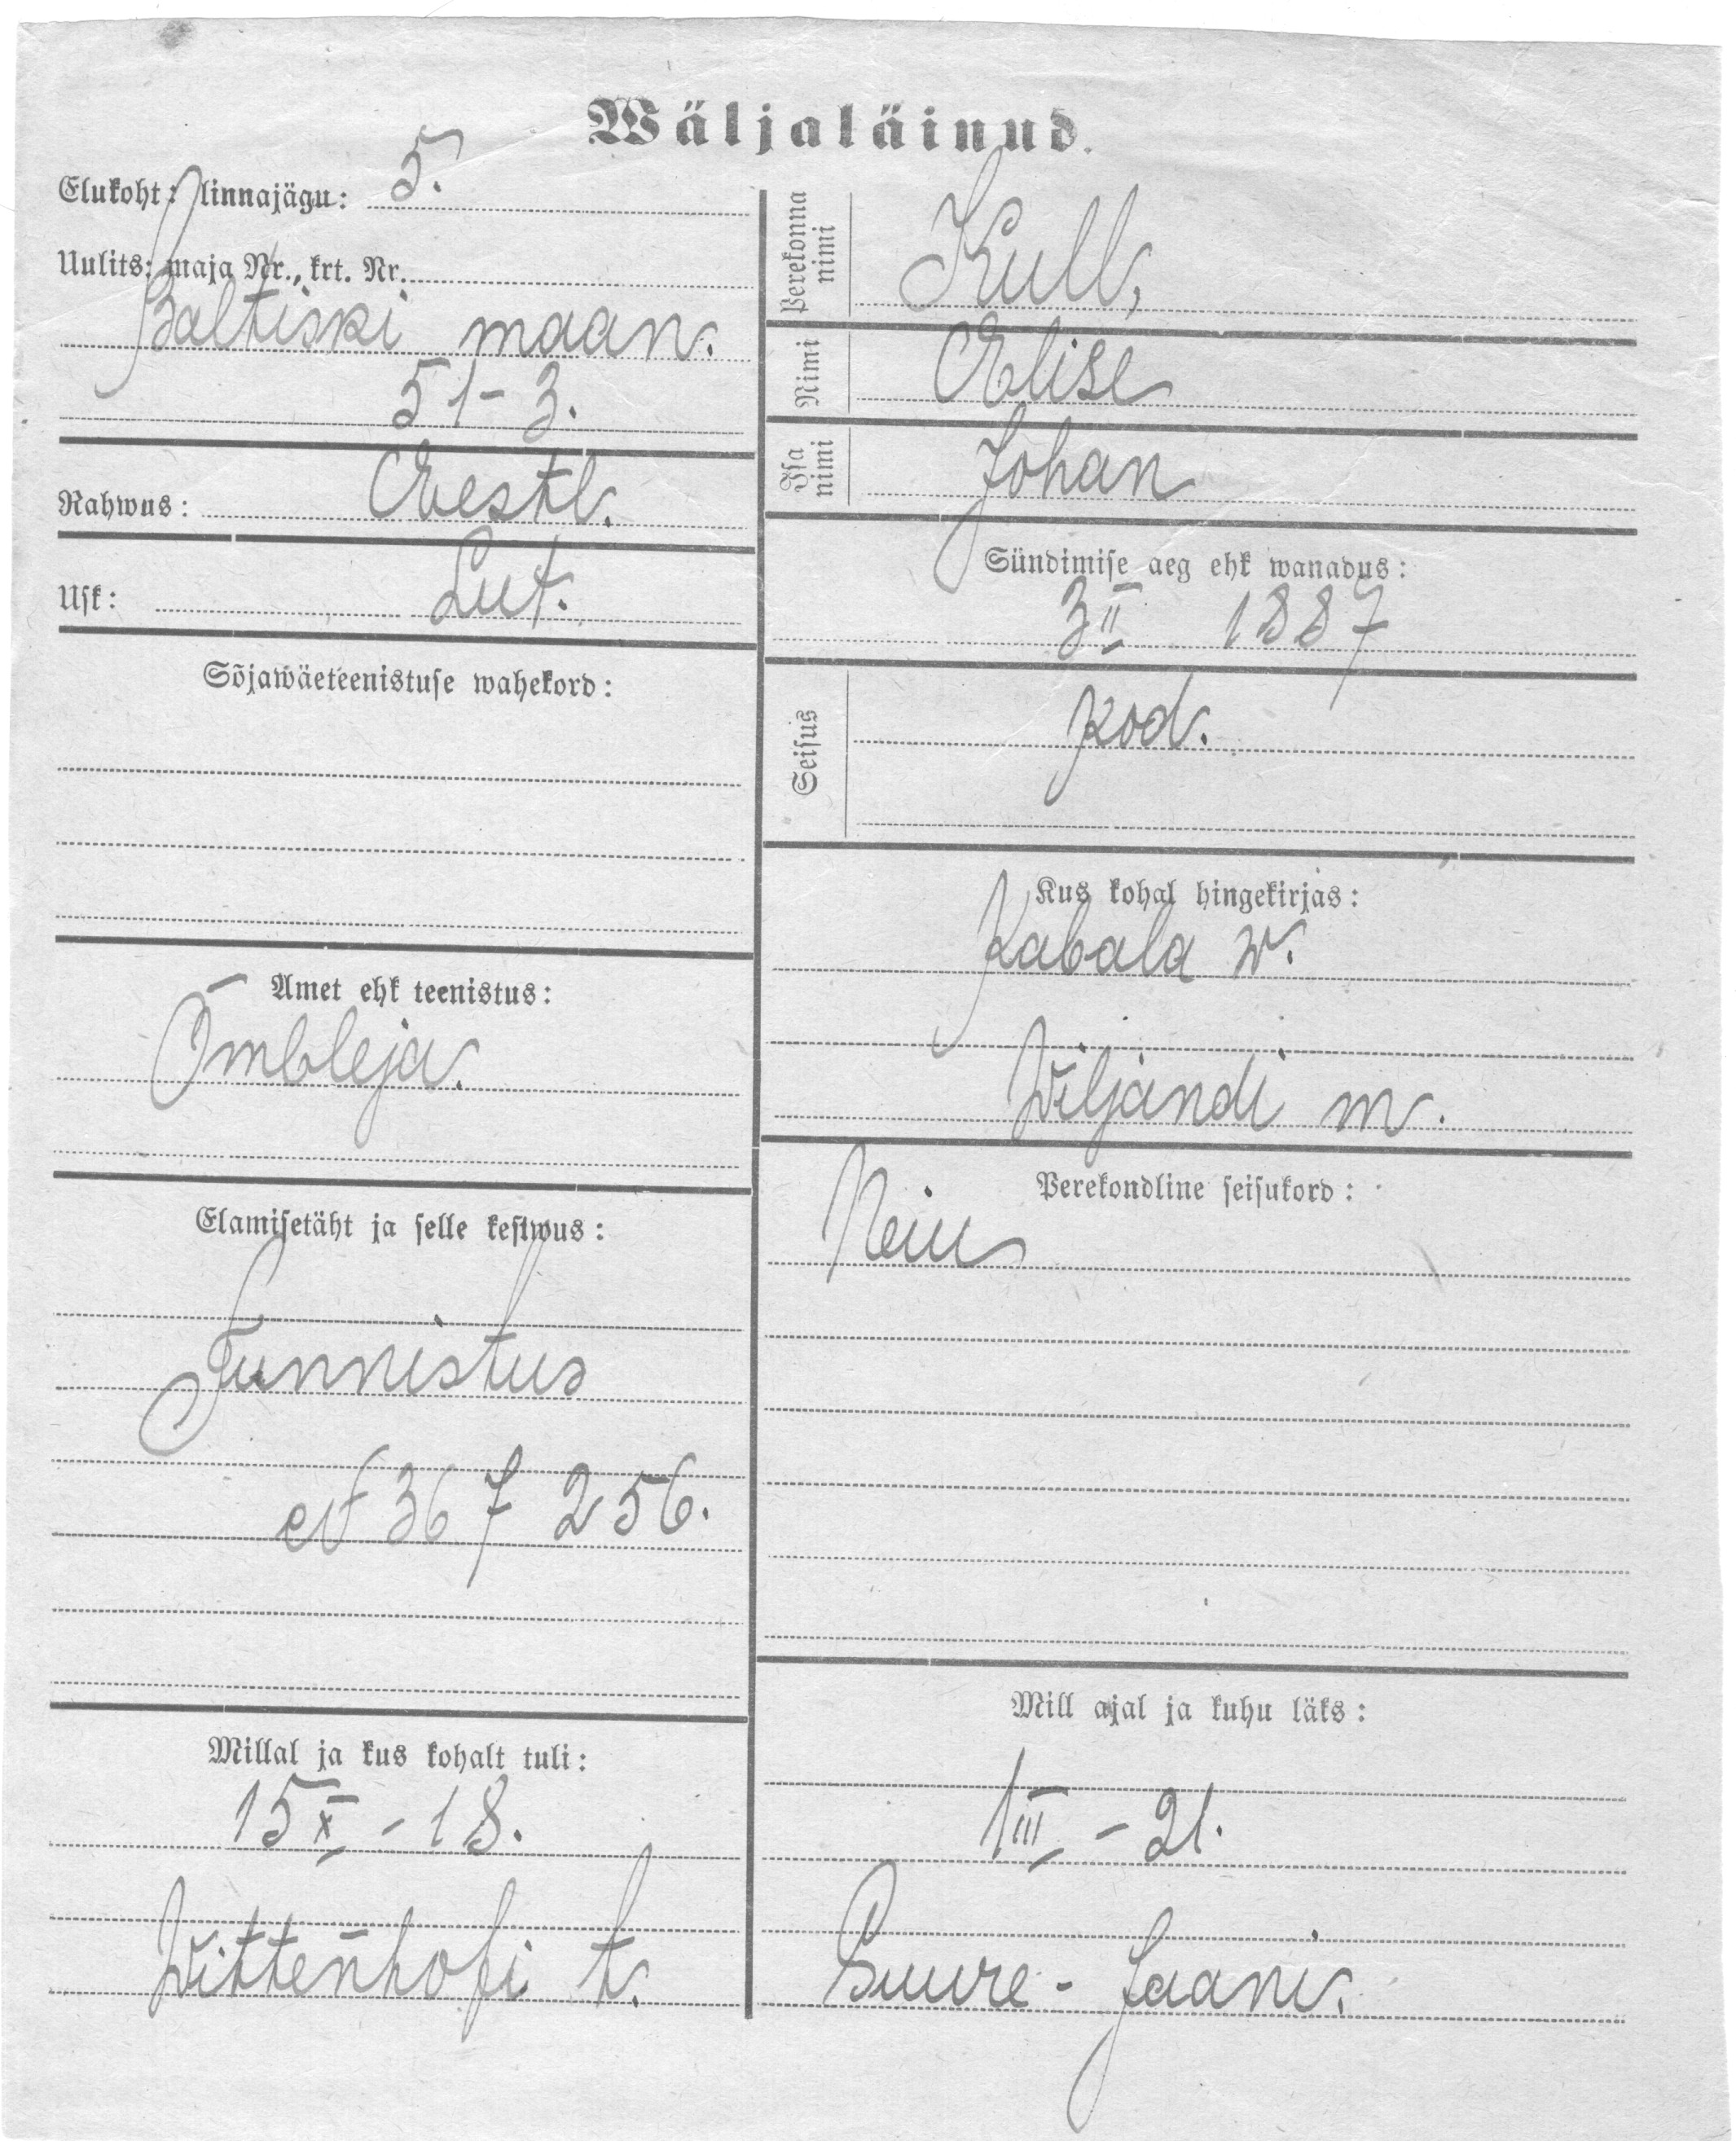 Wäljaläinud.
Elukoht: linnajägu: 5.
Uulits: maja Nr., krt. Nr.
Baltiski maan.
51-3.
Rahwus: Eestl.
Usk: Lut.
Sõjawäeteenistuse wahekord:
Amet ehk teenistus:
Õmbleja.
Elamisetäht ja selle kestwus:
Tunnistus
№ 367 256.
Millal ja kus kohalt tuli:
15 X - 18.
Wittenhofi t.
Perekonna nimi
Kull,
Nimi
Elise
Isa nimi
Johan
Sündimise aeg ehk wanadus:
3 II 1887
Seisus
kod.
Kus kohal hingekirjas:
Kabala w.
Wiljandi m.
Perekondline seisukord:
Neiu
Mill ajal ja kuhu läks:
1 III - 21.
Suure-Jaani.